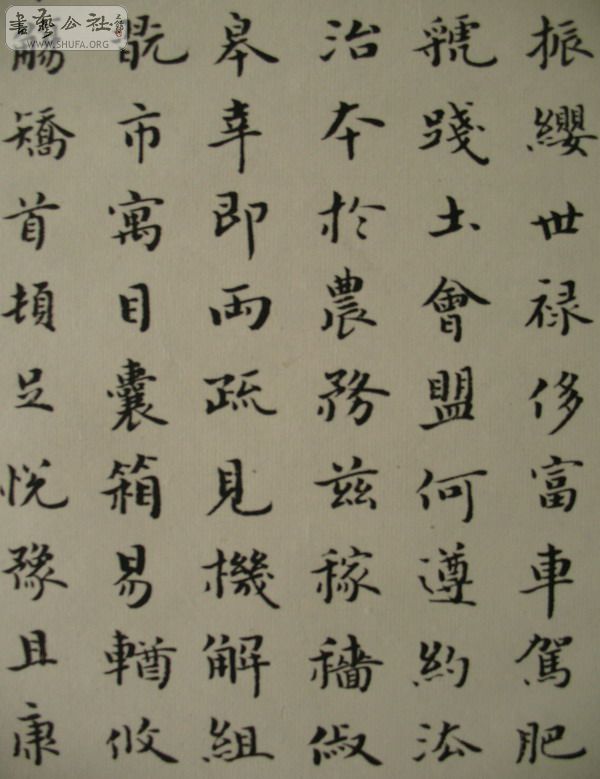 振纓世禄侈富車駕肥
虢踐土會盟何遵約法
治本於農務兹稼穡俶
皋幸即兩疏見機解組
翫市寓目囊箱易輶攸
觴矯首頓足悅豫且康
書藝公社
WWW.SHUFA.ORG